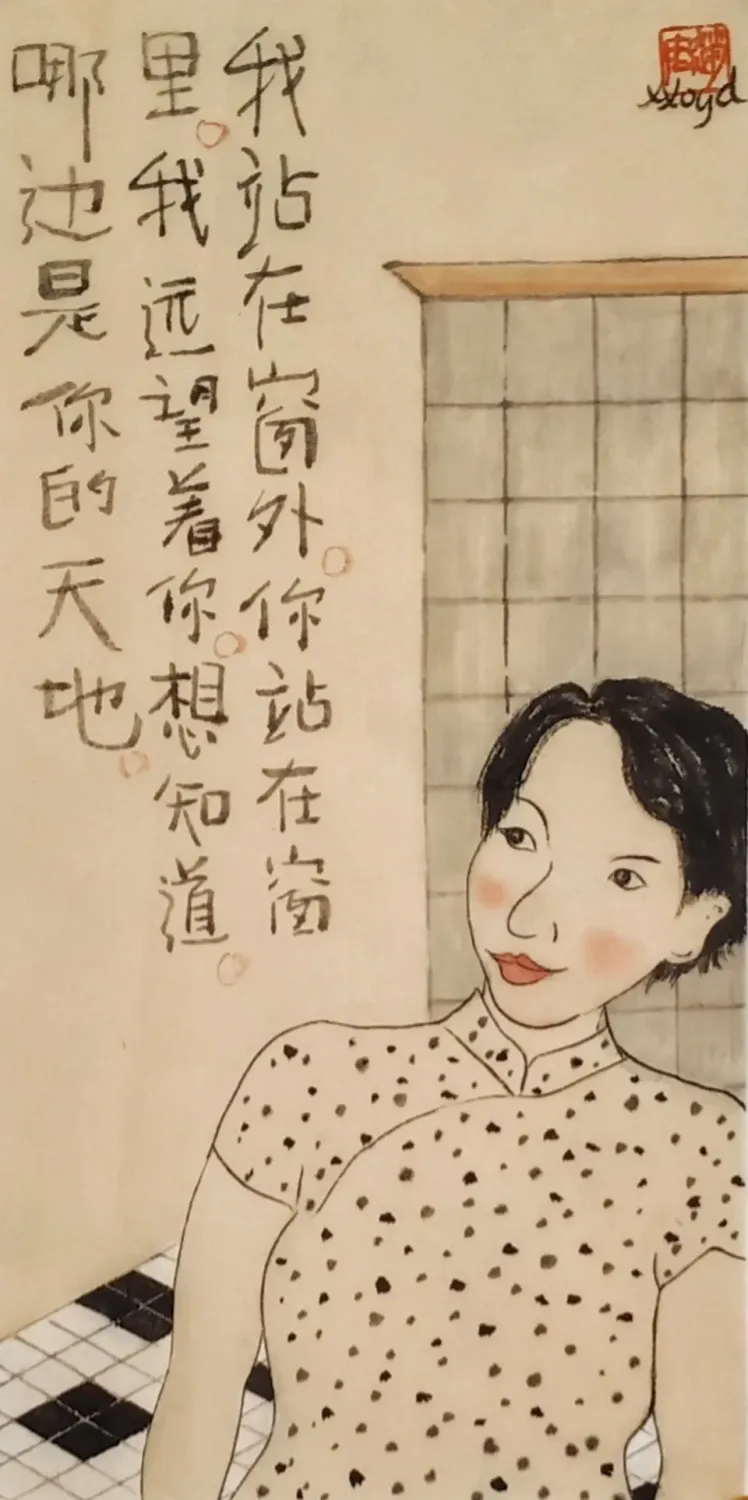 xxoyd
我站在窗外。你站在窗
里。我远望着你。想知道。
哪边是你的天地。